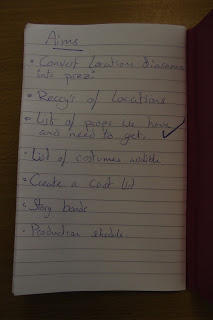 Aims
• Convert Location diagrams
into prezi
• Reccy's of Locations
• List of props we have
and need to get.
• List of costumes
• Create a cast list
• Story boards
• Production shedule